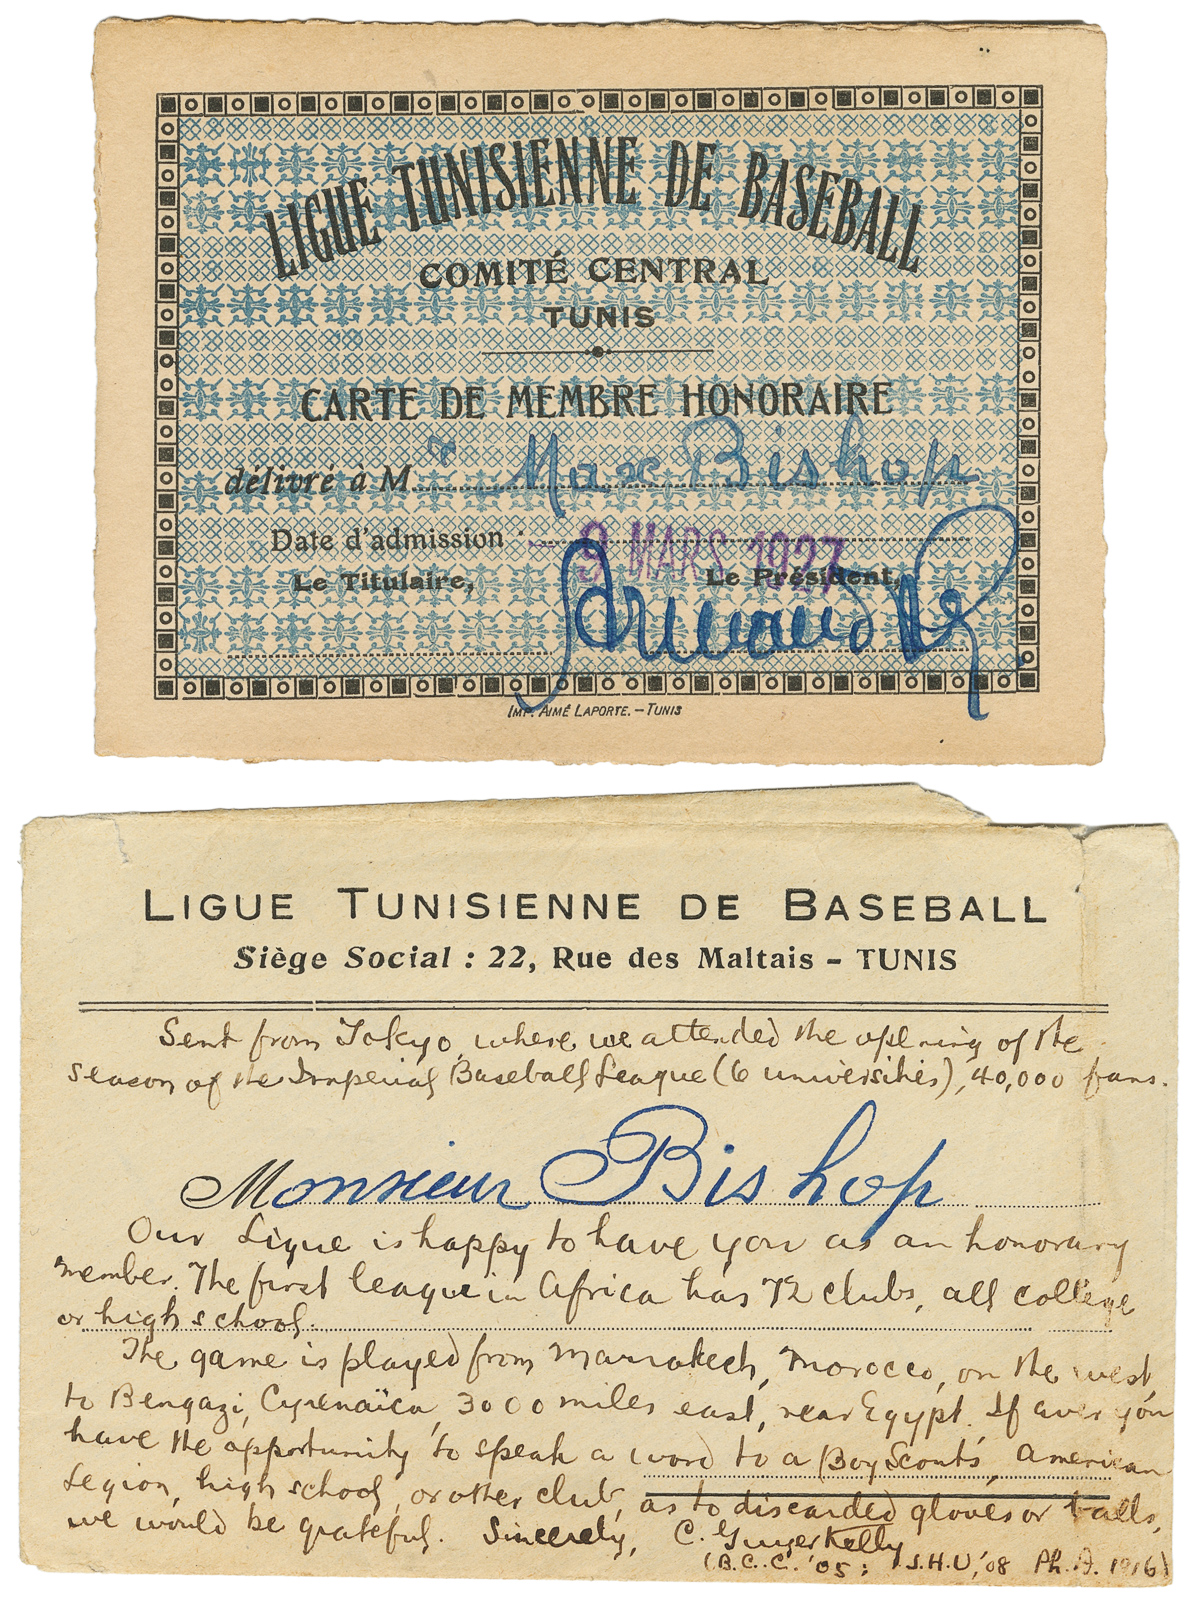 LIGUE TUNISIENNE DE BASEBALL
COMITÉ CENTRAL
TUNIS
CARTE DE MEMBRE HONORAIRE
délivré à M r Max Bishop
Date d'admission : - 9 MARS 1927
Le Titulaire, Le Président,
Armand
IMP. AIMÉ LAPORTE. – TUNIS
LIGUE TUNISIENNE DE BASEBALL
Siège Social : 22, Rue des Maltais – TUNIS
Sent from Tokyo, where we attended the opening of the
season of the Imperial Baseball League (6 universities), 40,000 fans.
Monsieur Bishop
Our Ligue is happy to have you as an honorary
member. The first league in Africa has 72 clubs, all college
or high school.
The game is played from Marrakech, Morocco, on the west,
to Bengazi, Cyrenaïca, 3000 miles east, near Egypt. If ever you
have the opportunity to speak a word to a Boy Scouts, American
Legion, high school, or other club, as to discarded gloves or balls,
we would be grateful. Sincerely, C. Ginger Kelly
(B.C.C. '05; S.H.U, '08 Ph. D. 1916)